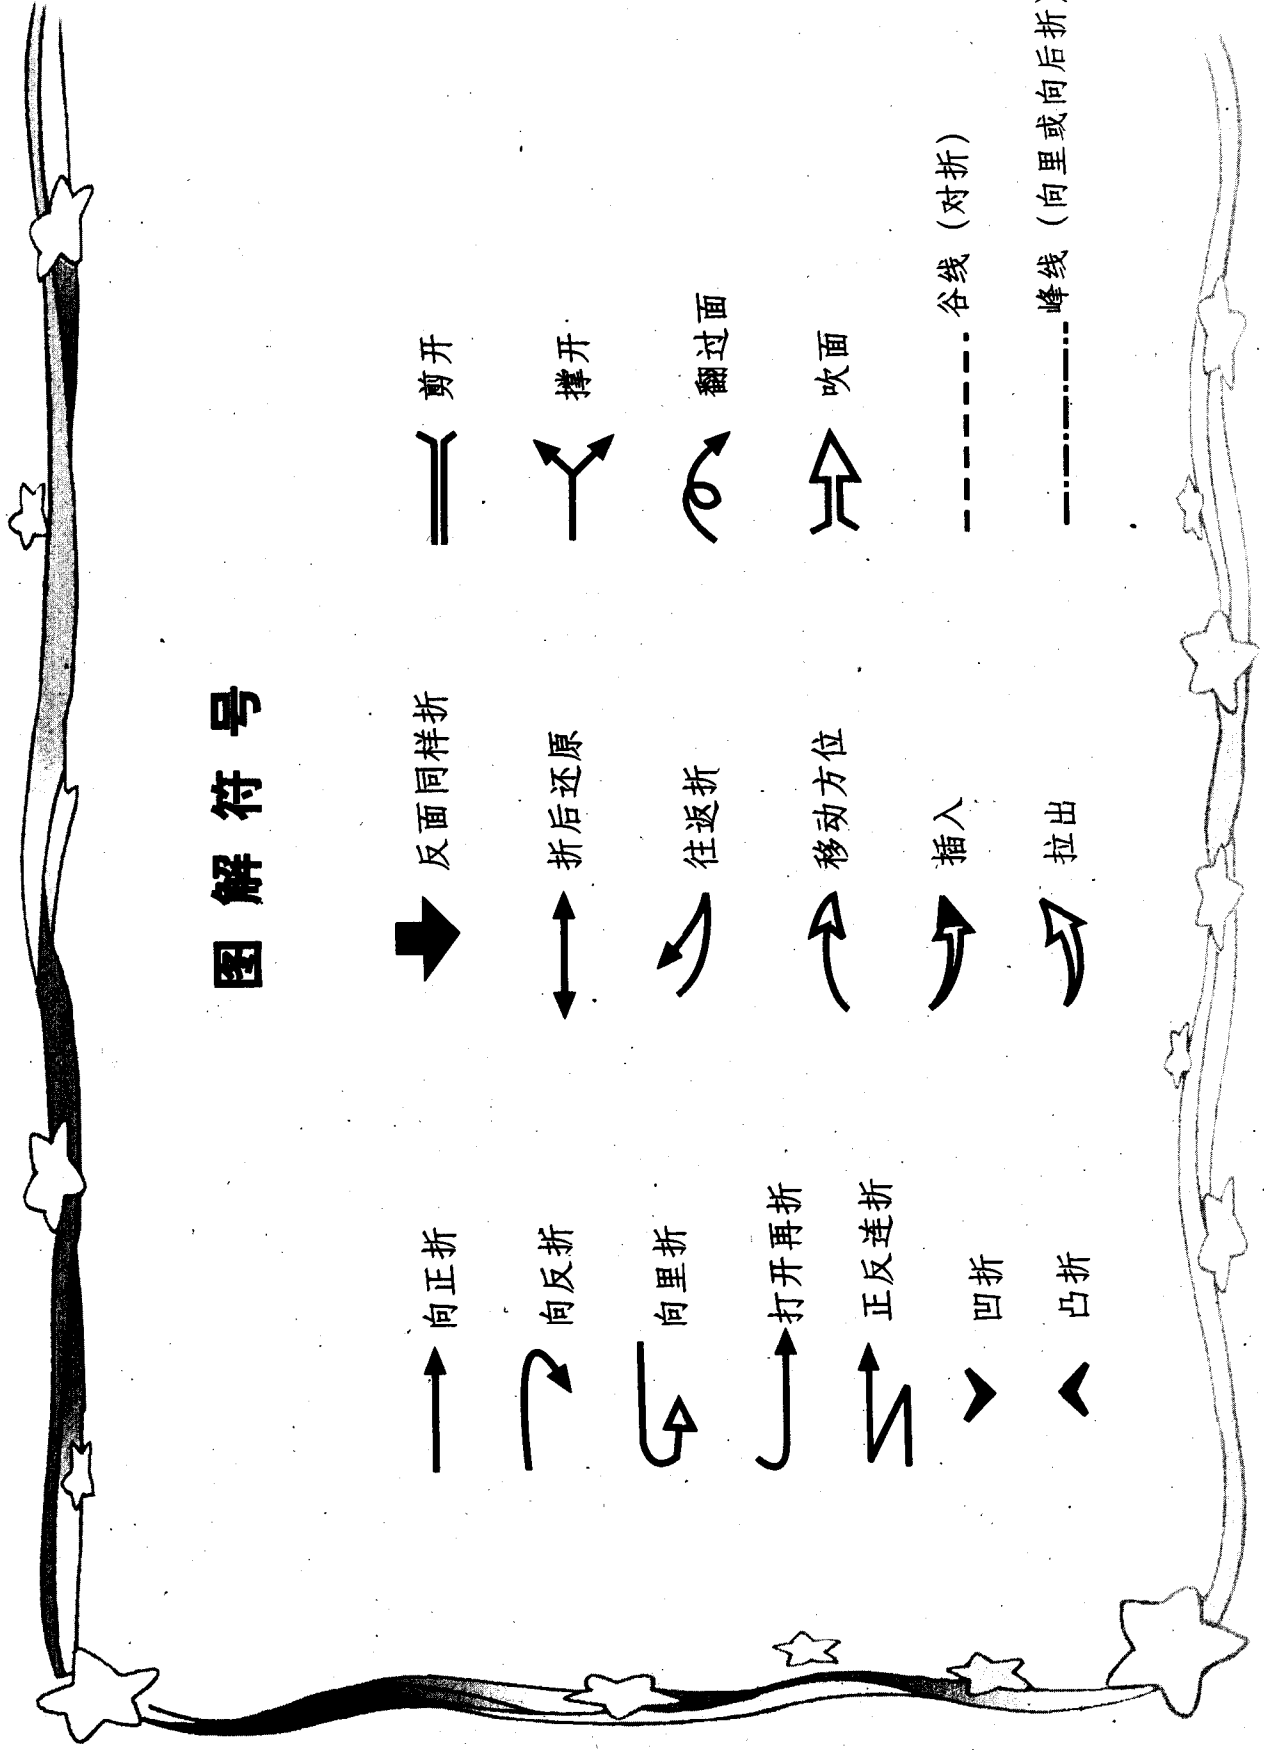 图解符号
向正折
向反折
向里折
打开再折
正反连折
凹折
凸折
反面同样折
折后还原
往返折
移动方位
插入
拉出
剪开
撑开
翻过面
吹面
谷线（对折）
峰线（向里或向后折）